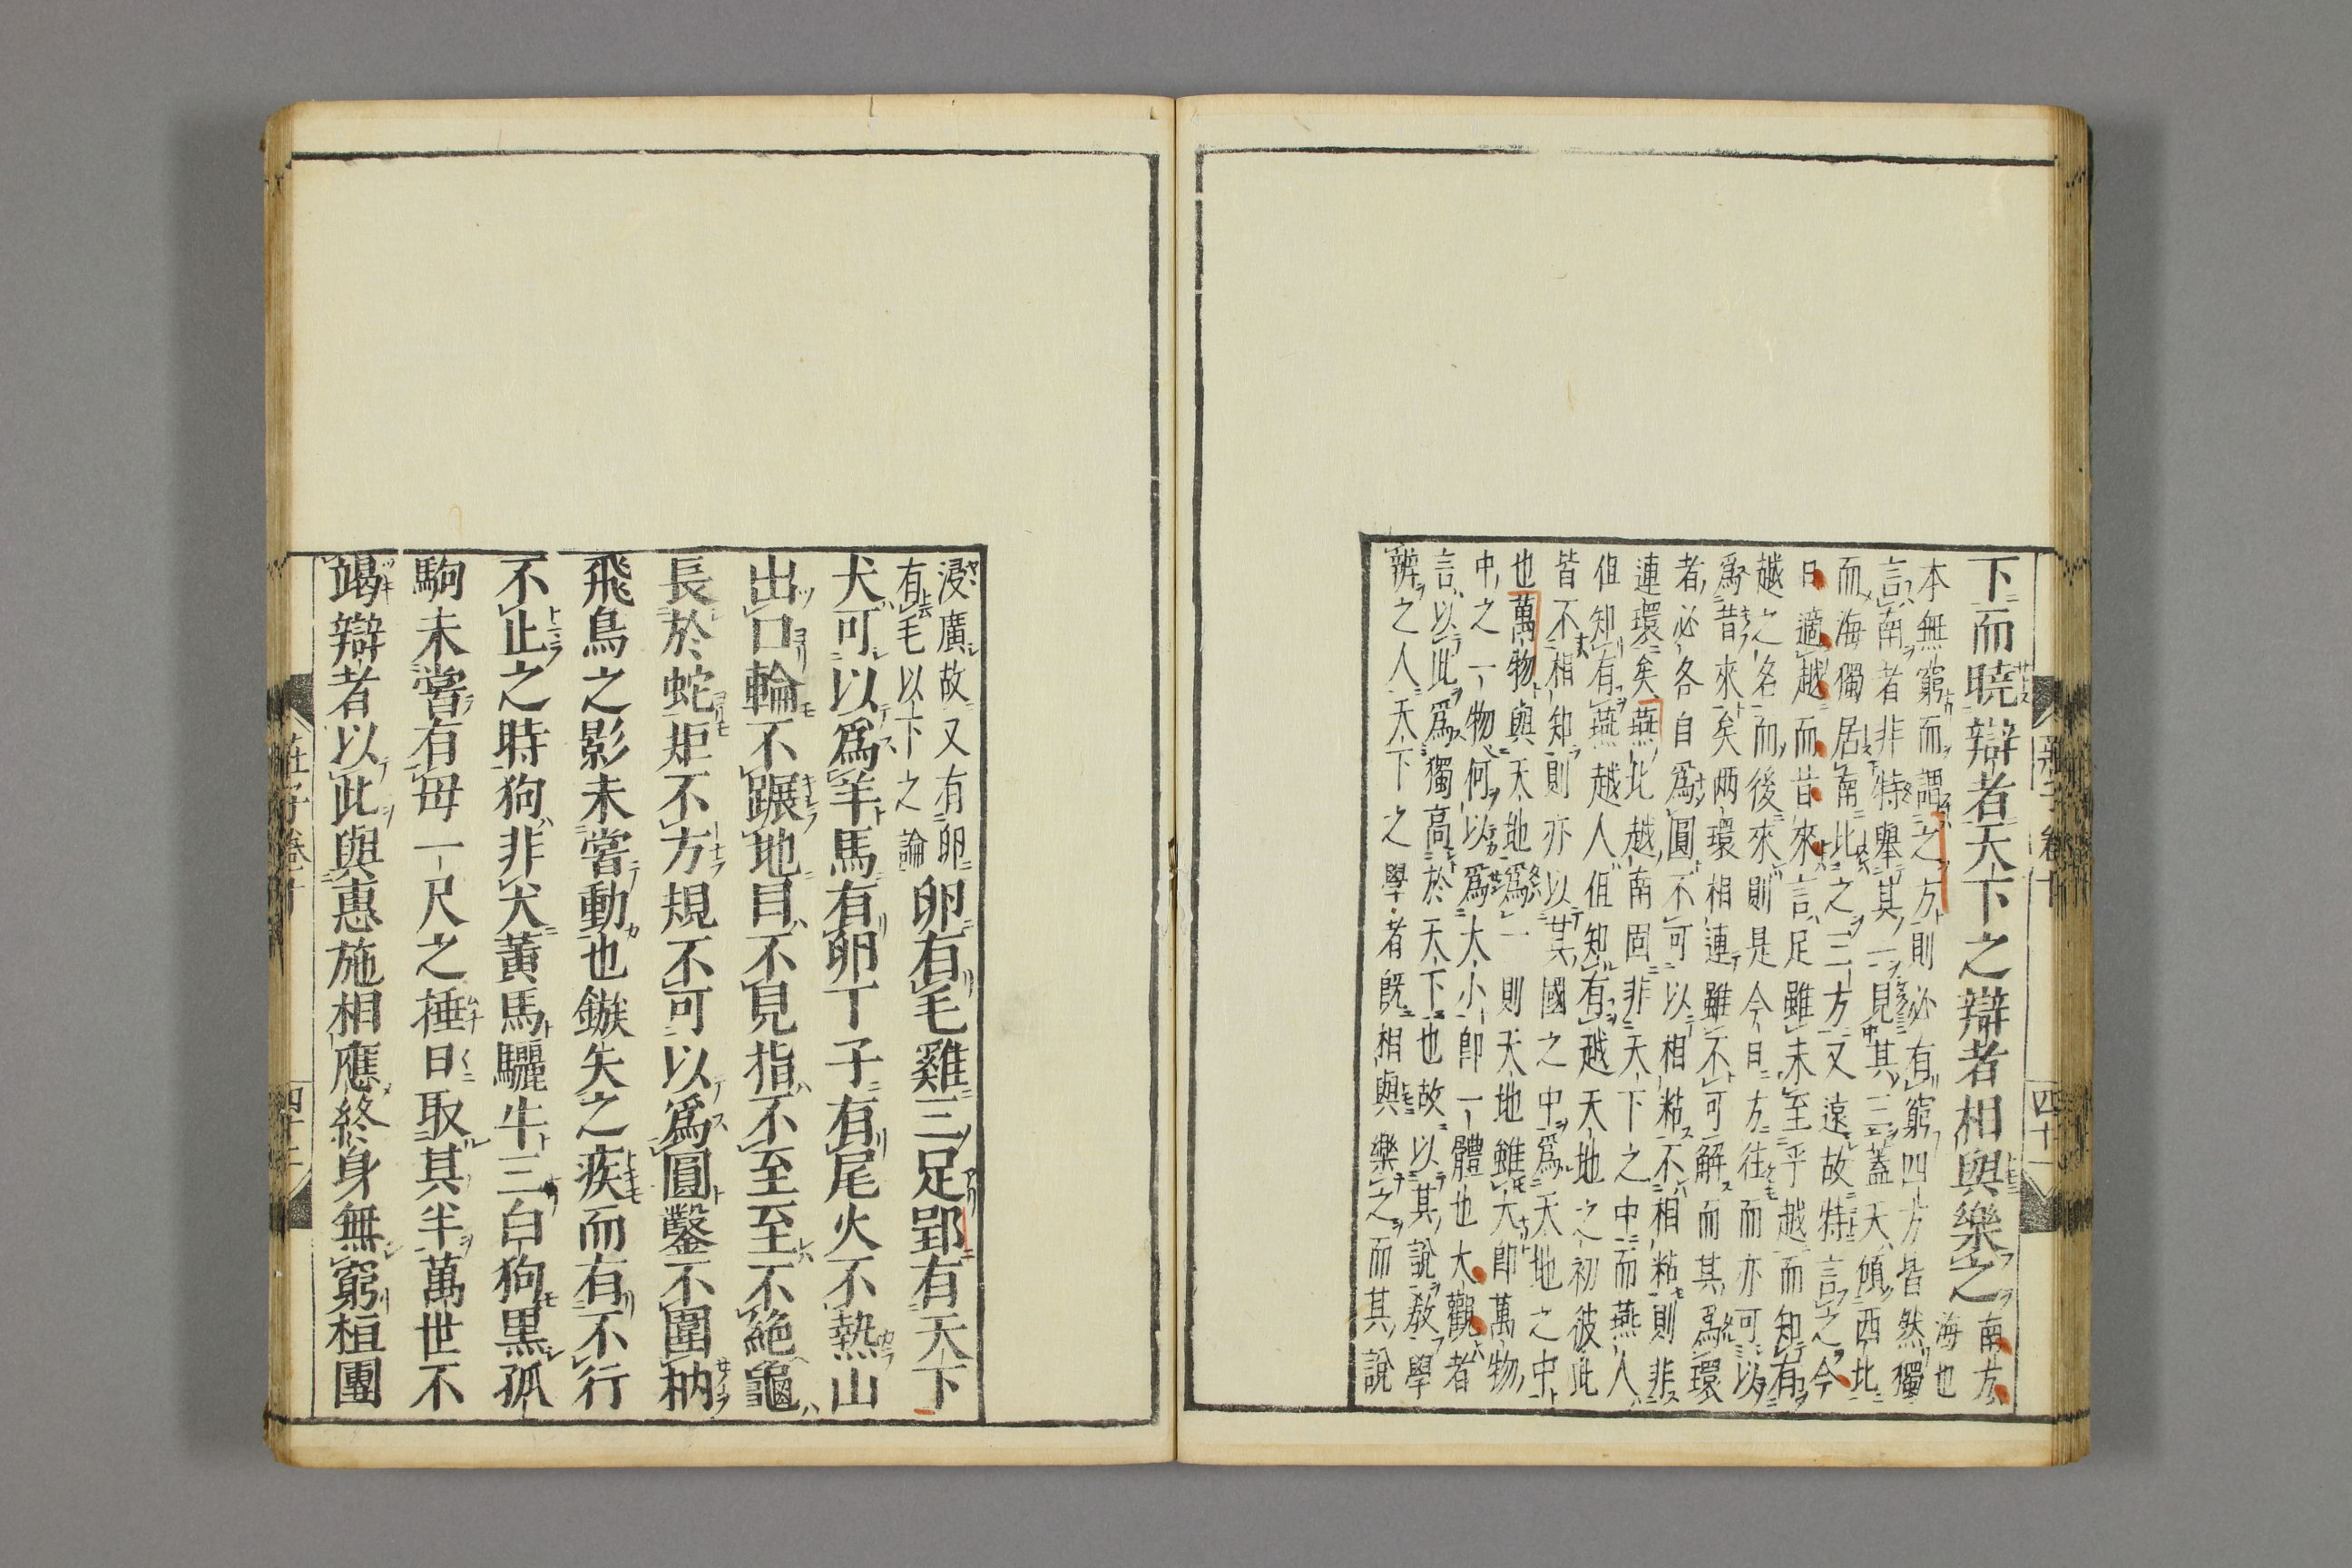 莊子卷十 四十一
下而曉辯者天下之辯者相與樂之南方
海也
本無窮而謂之方則必有窮四方皆然獨
言南者非特舉其一見其三蓋天傾西北
而海獨居南比之三方又遠故特言之今
日適越而昔來言足雖未至乎越而知有
越之名而後來則是今日方往而亦可以
爲昔來矣兩環相連雖不可解而其爲環
者必各自爲圓不可以相粘不相粘則非
連環矣燕北越南固非天下之中而燕人
但知有燕越人但知有越天地之初彼此
皆不相知則亦以其國之中爲天地之中
也萬物與天地爲一則天地雖大即萬物
中之一物何以爲大小即一體也大觀者
言以此爲獨高於天下也故以其說敎學
辨之人天下之學者旣相與樂之而其說
浸廣故又有卵
有毛以下之論
卵有毛雞三足郢有天下
犬可以爲羊馬有卵丁子有尾火不熱山
出口輪不蹍地目不見指不至至不絕龜
長於蛇矩不方規不可以爲圓鑿不圍枘
飛鳥之影未嘗動也鏃矢之疾而有不行
不止之時狗非犬黃馬驪牛三白狗黑孤
駒未嘗有母一尺之捶日取其半萬世不
竭辯者以此與惠施相應終身無窮桓團
莊子卷十 四十二